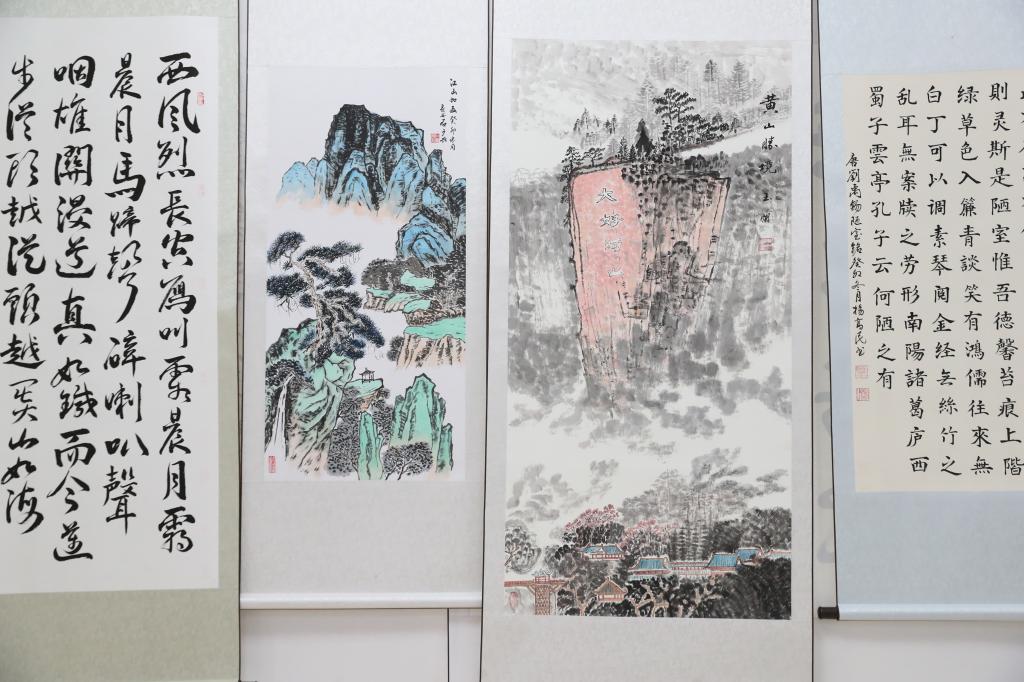 西风烈長空雁叫霜晨月霜
晨月馬蹄聲碎喇叭聲
咽雄關漫道真如鐵而今邁
步從頭越從頭越蒼山如海
江山如画癸卯
黄山勝境
大好河山
則灵斯是陋室惟吾德馨苔痕上階
绿草色入簾青談笑有鴻儒往來無
白丁可以调素琴阅金经无絲竹之
乱耳無案牍之劳形南陽諸葛庐西
蜀子雲亭孔子云何陋之有
唐劉禹锡陋室銘癸卯冬月楊高民书